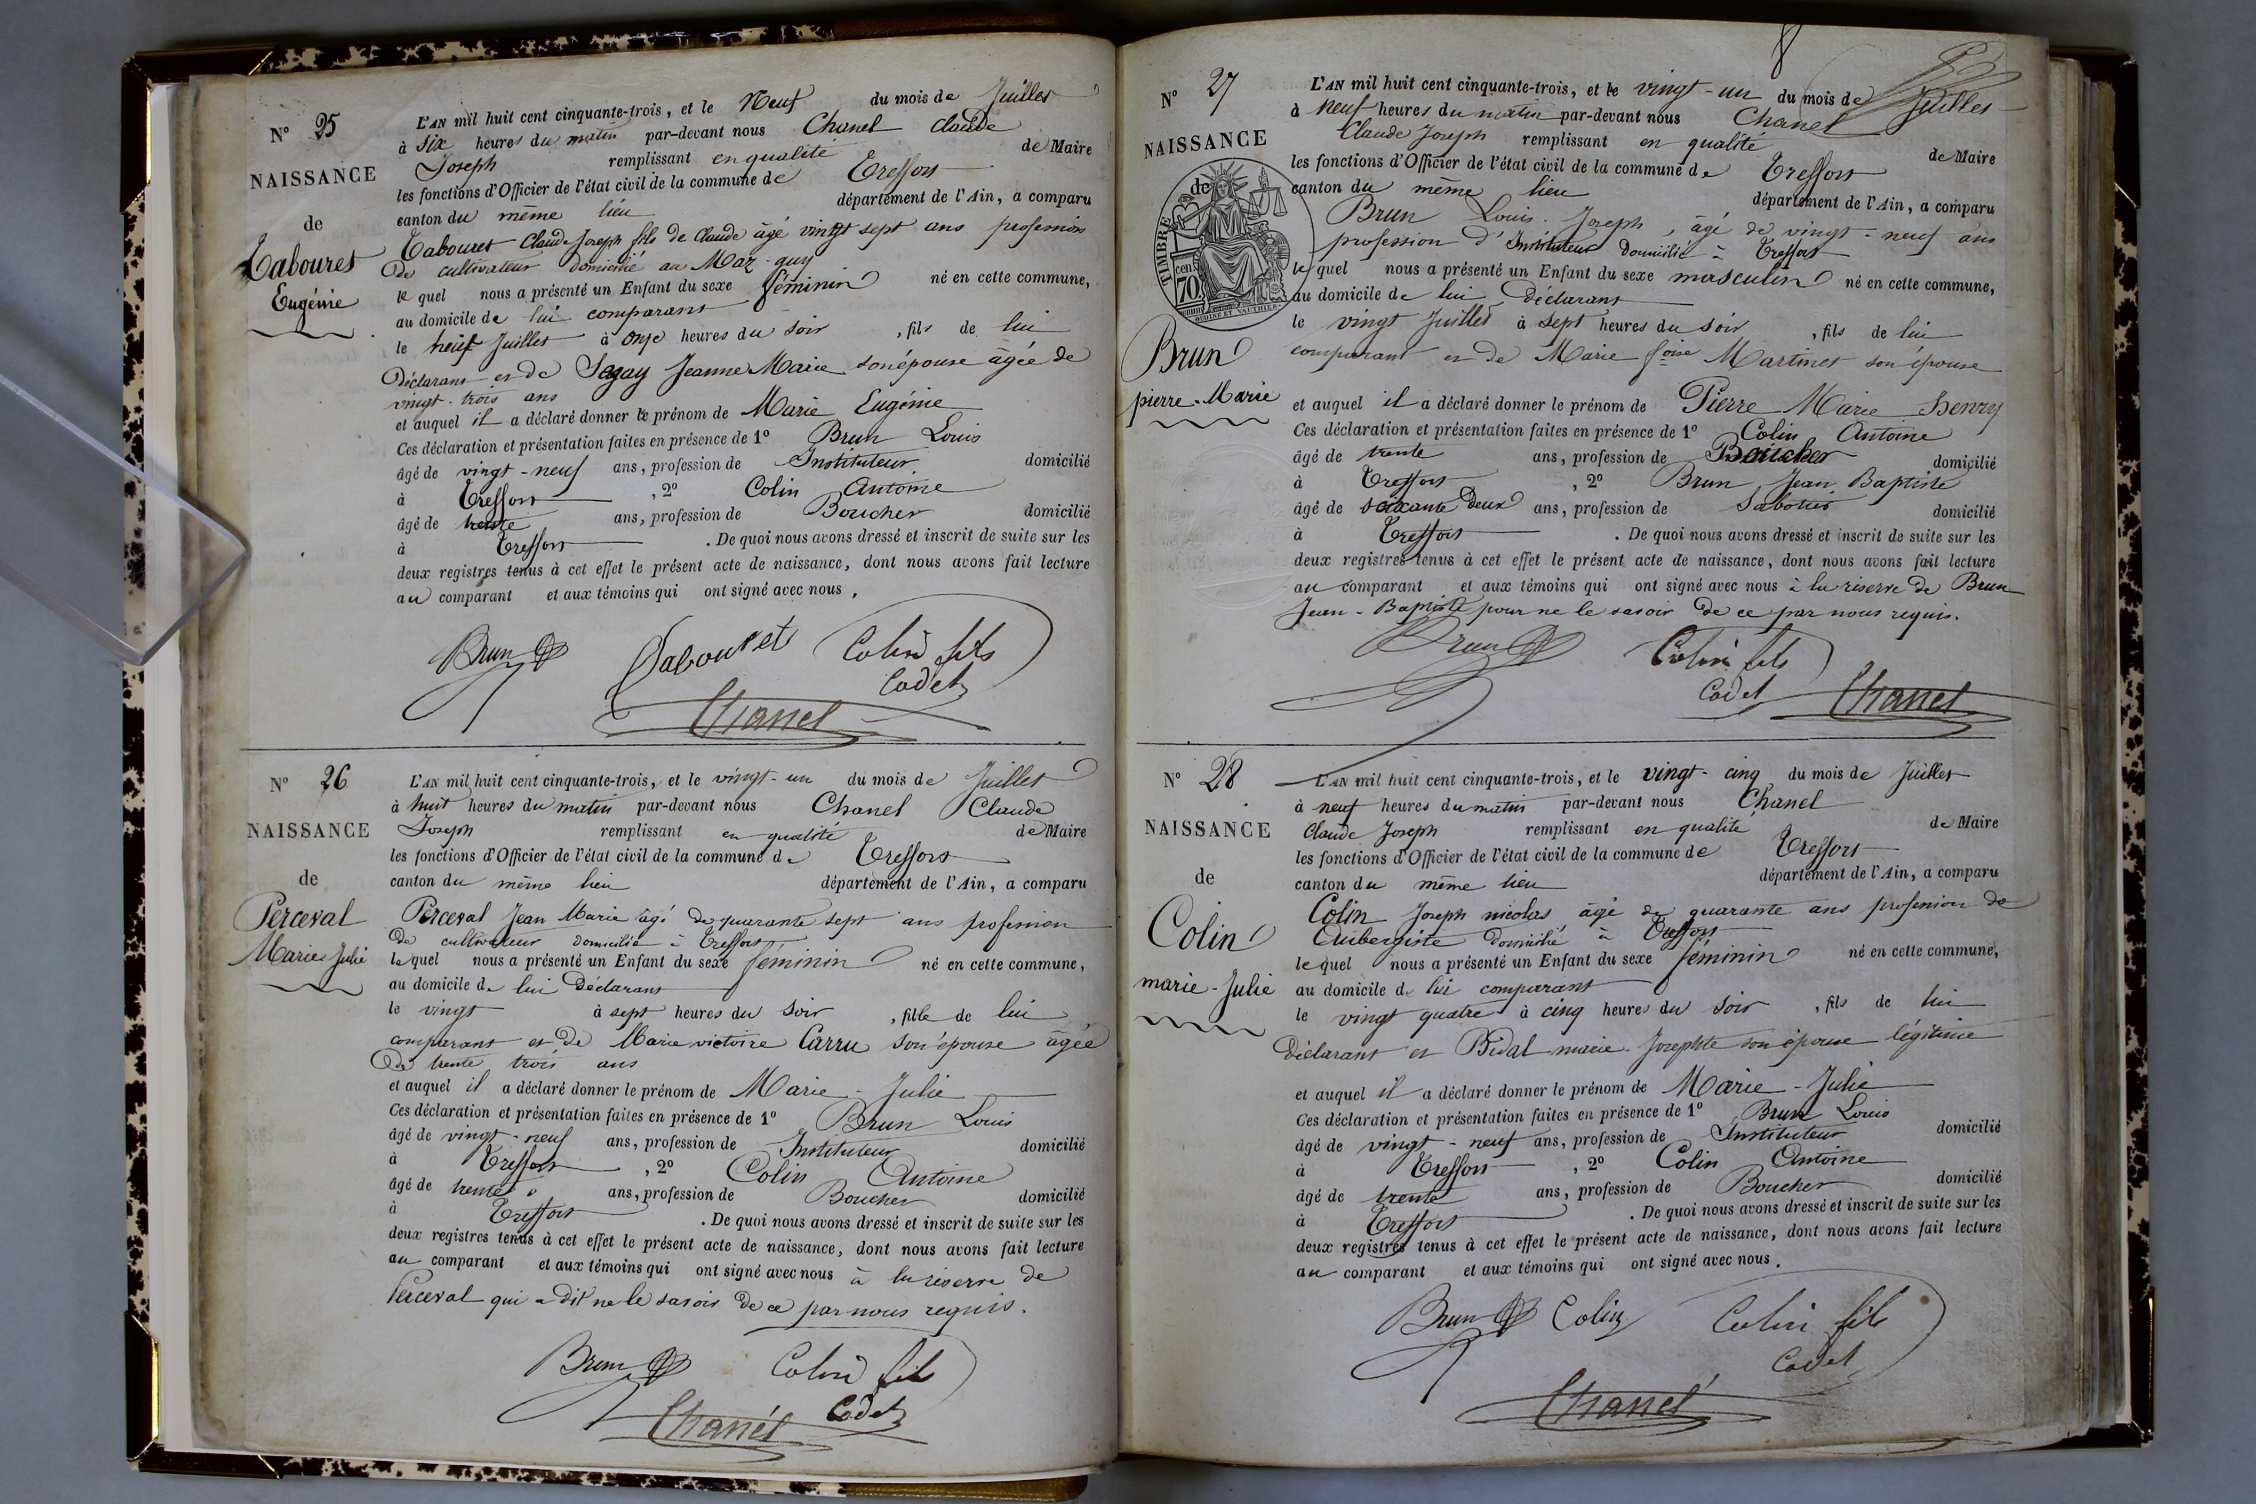 N° 25
NAISSANCE
de
Tabouret
Eugénie
L'AN mil huit cent cinquante-trois, et le Neuf du mois de Juillet
à six heures du matin par-devant nous Chanel Claude
Joseph remplissant en qualité de Maire
les fonctions d'Officier de l'état civil de la commune de Treffort
canton du même lieu département de l'Ain, a comparu
Tabouret Claude Joseph fils de Claude âgé vingt sept ans profession
de cultivateur domicilié au Maz-guy
le quel nous a présenté un Enfant du sexe féminin né en cette commune,
au domicile de lui comparant
le neuf Juillet à onze heures du soir, fils de lui
Déclarant et de Segay Jeanne Marie son épouse âgée de
vingt-trois ans
et auquel il a déclaré donner le prénom de Marie Eugénie
Ces déclaration et présentation faites en présence de 1° Brun Louis
âgé de vingt-neuf ans, profession de Instituteur domicilié
à Treffort, 2° Colin Antoine
âgé de trente ans, profession de Boucher domicilié
à Treffort. De quoi nous avons dressé et inscrit de suite sur les
deux registres tenus à cet effet le présent acte de naissance, dont nous avons fait lecture
au comparant et aux témoins qui ont signé avec nous.
Brun Tabouret Colin fils
Cadet
Chanel
N° 26
NAISSANCE
de
Perceval
Marie Julie
L'AN mil huit cent cinquante-trois, et le vingt-un du mois de Juillet
à huit heures du matin par-devant nous Chanel Claude
Joseph remplissant en qualité de Maire
les fonctions d'Officier de l'état civil de la commune de Treffort
canton du même lieu département de l'Ain, a comparu
Perceval Jean Marie âgé de quarante sept ans profession
de cultivateur domicilié à Treffort
lequel nous a présenté un Enfant du sexe féminin né en cette commune,
au domicile de lui Déclarant
le vingt à sept heures du soir, fille de lui
comparant et de Marie victoire Carru son épouse âgée
de trente trois ans
et auquel il a déclaré donner le prénom de Marie-Julie
Ces déclaration et présentation faites en présence de 1° Brun Louis
âgé de vingt-neuf ans, profession de Instituteur domicilié
à Treffort, 2° Colin Antoine
âgé de trente ans, profession de Boucher domicilié
à Treffort. De quoi nous avons dressé et inscrit de suite sur les
deux registres tenus à cet effet le présent acte de naissance, dont nous avons fait lecture
au comparant et aux témoins qui ont signé avec nous à la réserve de
Perceval qui a dit ne le savoir de ce par nous requis.
Brun Colin fils
Chanel Cadet
N° 27
NAISSANCE
de
TIMBRE
70
Brun
pierre-Marie
L'AN mil huit cent cinquante-trois, et le vingt-un du mois de Juillet
à neuf heures du matin par-devant nous Chanel
Claude Joseph remplissant en qualité de Maire
les fonctions d'Officier de l'état civil de la commune de Treffort
canton du même lieu département de l'Ain, a comparu
Brun Louis Joseph, âgé de vingt-neuf ans
profession d'Instituteur domicilié à Treffort
lequel nous a présenté un Enfant du sexe masculin né en cette commune,
au domicile de lui Déclarant
le vingt Juillet à sept heures du soir, fils de lui
comparant et de Marie foise Martinet son épouse
et auquel il a déclaré donner le prénom de Pierre Marie henry
Ces déclaration et présentation faites en présence de 1° Colin Antoine
âgé de trente ans, profession de Boucher domicilié
à Treffort, 2° Brun Jean Baptiste
âgé de soixante Deux ans, profession de Sabotier domicilié
à Treffort. De quoi nous avons dressé et inscrit de suite sur les
deux registres tenus à cet effet le présent acte de naissance, dont nous avons fait lecture
au comparant et aux témoins qui ont signé avec nous à la réserve de Brun
Jean-Baptiste pour ne le savoir de ce par nous requis.
Brun Colin fils
Cadet Chanel
N° 28
NAISSANCE
de
Colin
marie-Julie
L'AN mil huit cent cinquante-trois, et le vingt-cinq du mois de Juillet
à neuf heures du matin par-devant nous Chanel
Claude Joseph remplissant en qualité de Maire
les fonctions d'Officier de l'état civil de la commune de Treffort
canton du même lieu département de l'Ain, a comparu
Colin Joseph nicolas âgé de quarante ans profession de
Aubergiste domicilié à Treffort
lequel nous a présenté un Enfant du sexe féminin né en cette commune,
au domicile de lui comparant
le vingt quatre à cinq heures du soir, fils de lui
Déclarant et Bidal marie Josephte son épouse légitime
et auquel il a déclaré donner le prénom de Marie-Julie
Ces déclaration et présentation faites en présence de 1° Brun Louis
âgé de vingt-neuf ans, profession de Instituteur domicilié
à Treffort, 2° Colin Antoine
âgé de trente ans, profession de Boucher domicilié
à Treffort. De quoi nous avons dressé et inscrit de suite sur les
deux registres tenus à cet effet le présent acte de naissance, dont nous avons fait lecture
au comparant et aux témoins qui ont signé avec nous.
Brun Colin Colin fils
Cadet
Chanel